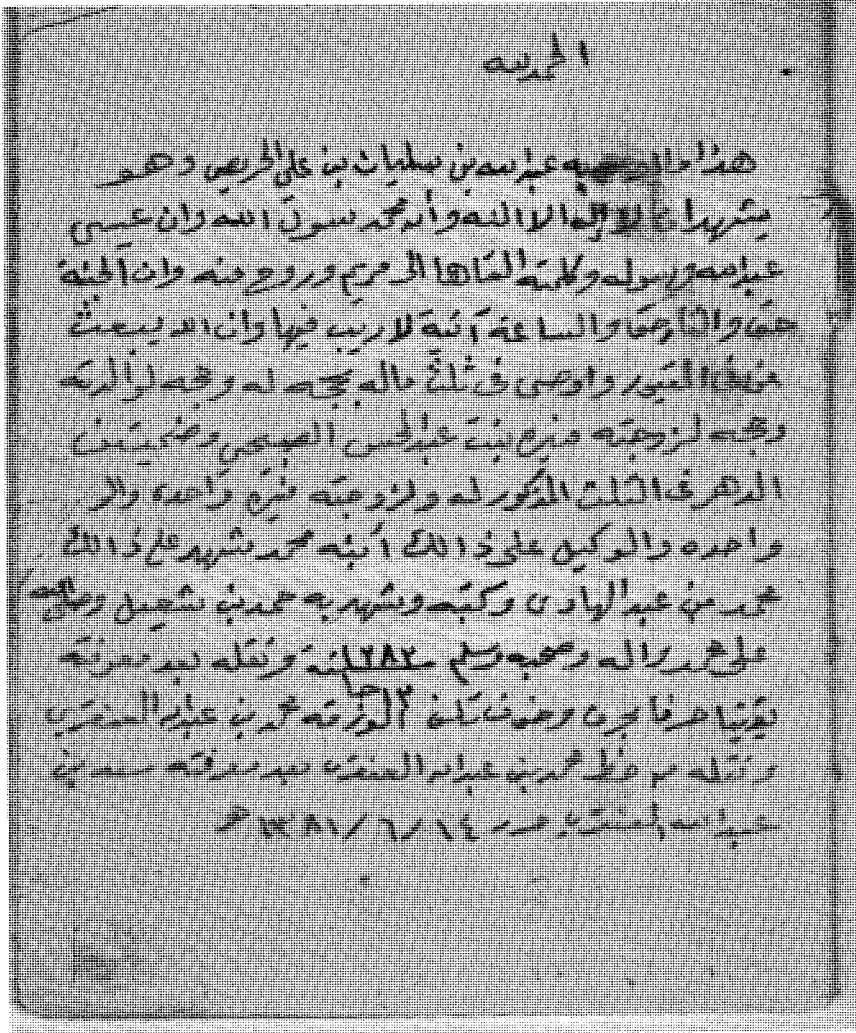 الحمد لله
هذا ما اوصى به عبدالله بن سليمان بن علي الحريص وهو
يشهد ان لا اله الا الله وأن محمد سول الله وان عيسى
عبدالله ورسوله وكلمته القاها الى مريم وروح منه وان الجنة
حق والنار حق والساعة آتية لا ريب فيها وان الله يبعث
من في القبور واوصى في ثلث ماله بحجه له وحجه لوالدته
وحجه لزوجته منيره بنت عبدالمحسن الصبيحي وضحيتين
الدهر في الثلث المذكور له ولزوجته منيره واحده
واحده والوكيل على ذالك أبنه محمد شهد على ذالك
محمد من عبدالهادي وكتبه وشهد به حمد بن وصلى الله
على محمد واله وصحبه وسلم ١٢٨٣ سنة ونقله بعد معرفته
يقينا حرفا بحرف محمد بن عبدالله العنقري
ونقله من خط محمد بن عبدالله العنقري بعد معرفته سعد بن
عبدالله العنقري حرر ١٣٨١/٦/١٤ هـ